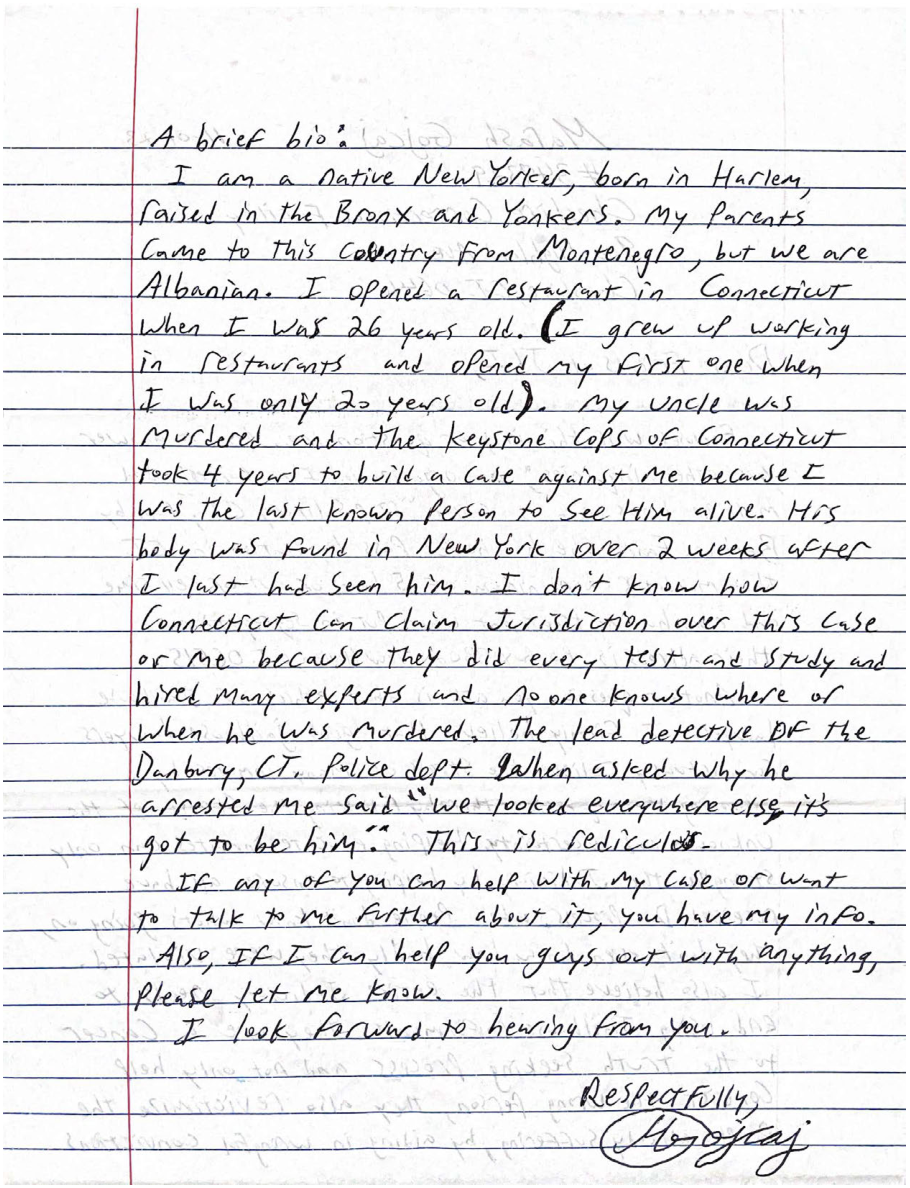 A brief bio:
I am a native New Yorker, born in Harlem,
raised in the Bronx and Yonkers. My Parents
Came to this Country From Montenegro, but we are
Albanian. I opened a restaurant in Connecticut
when I was 26 years old. (I grew up working
in restaurants and opened my first one when
I was only 20 years old). My uncle was
Murdered and the Keystone Cops of Connecticut
took 4 years to build a Case against me because I
was the last known Person to See Him alive. His
body was found in New York over 2 weeks after
I last had seen him. I don't know how
Connecticut Can Claim Jurisdiction over this Case
or me because they did every test and study and
hired many experts and no one knows where or
when he was murdered. The lead detective OF the
Danbury, CT. Police dept. When asked why he
arrested me said "we looked everywhere else, it's
got to be him". This is rediculos.
If any of you can help with my Case or want
to talk to me further about it, you have my info.
Also, IF I can help you guys out with anything,
Please let me know.
I look forward to hearing from you.
Respectfully,